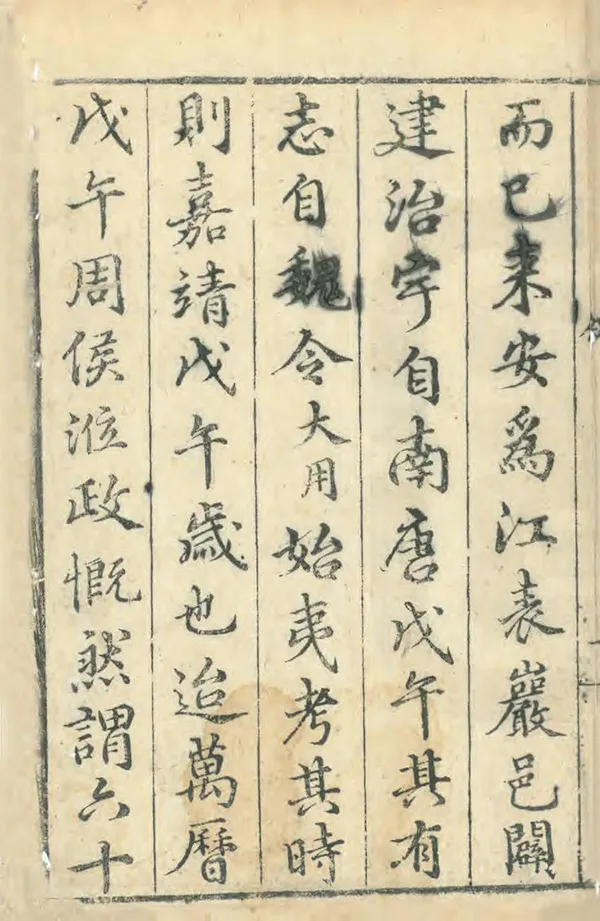 而已来安爲江表巖邑闢
建治字自南唐戊午其有
志自魏令大用始夷考其時
則嘉靖戊午歲也迨萬曆
戊午周侯涖政慨然謂六十